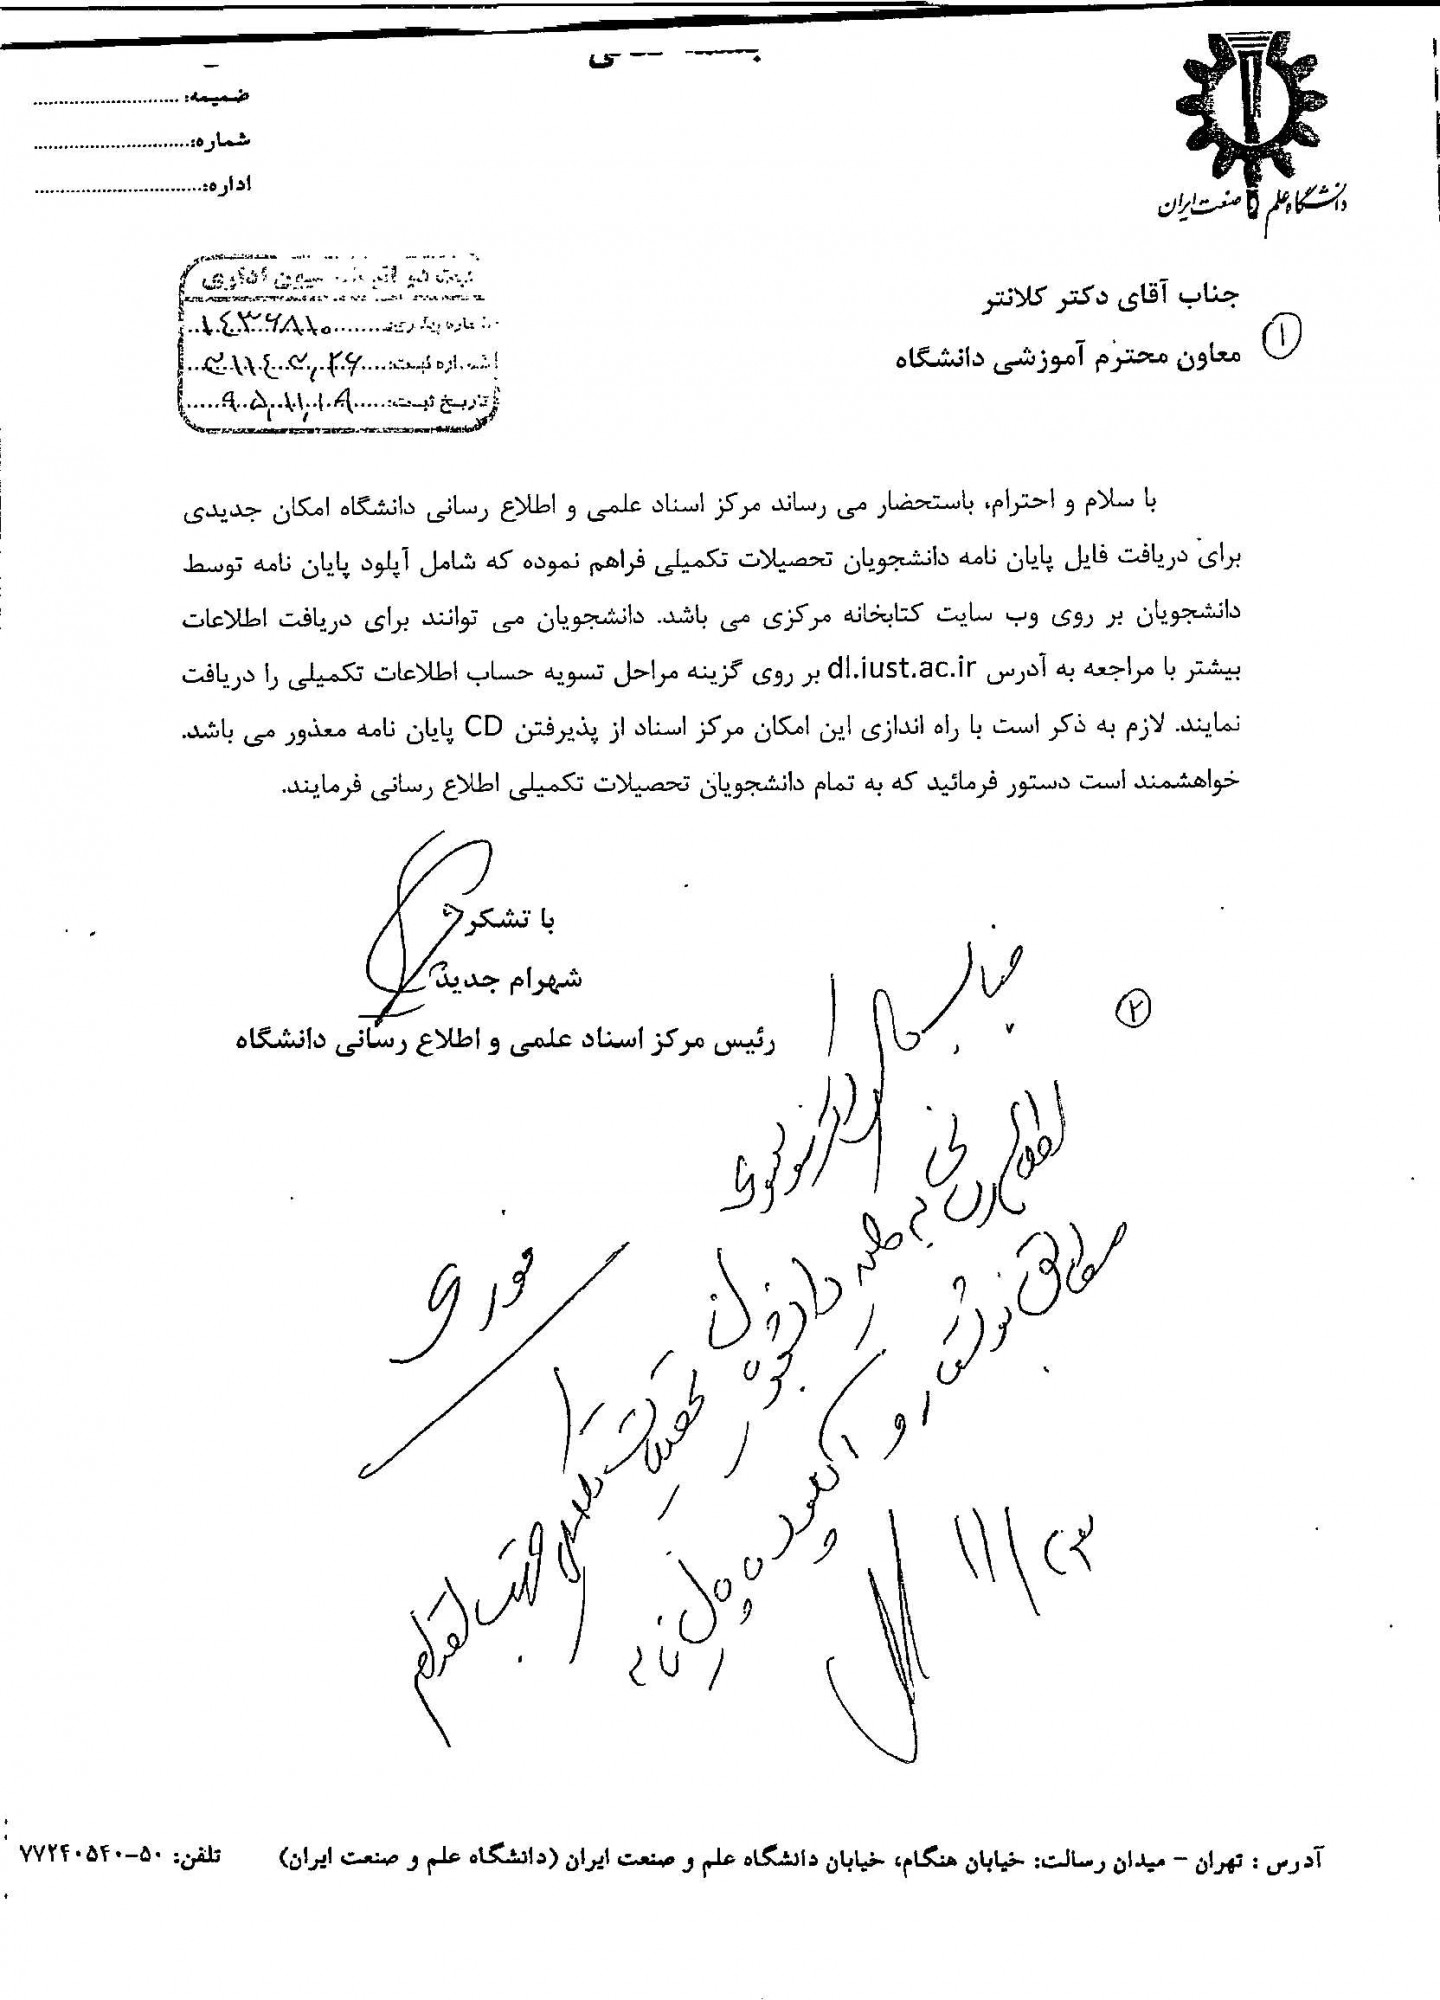 دانشگاه علم و صنعت ایران
ضمیمه:
شماره:
اداره:
شماره ثبت:
تاریخ ثبت: ۹۵,۱۱,۱۹
۱
جناب آقای دکتر کلانتر
معاون محترم آموزشی دانشگاه
با سلام و احترام، باستحضار می رساند مرکز اسناد علمی و اطلاع رسانی دانشگاه امکان جدیدی
برای دریافت فایل پایان نامه دانشجویان تحصیلات تکمیلی فراهم نموده که شامل آپلود پایان نامه توسط
دانشجویان بر روی وب سایت کتابخانه مرکزی می باشد. دانشجویان می توانند برای دریافت اطلاعات
بیشتر با مراجعه به آدرس dl.iust.ac.ir بر روی گزینه مراحل تسویه حساب اطلاعات تکمیلی را دریافت
نمایند. لازم به ذکر است با راه اندازی این امکان مرکز اسناد از پذیرفتن CD پایان نامه معذور می باشد.
خواهشمند است دستور فرمائید که به تمام دانشجویان تحصیلات تکمیلی اطلاع رسانی فرمایند.
با تشکر
شهرام جدید
رئیس مرکز اسناد علمی و اطلاع رسانی دانشگاه
۲
جناب آقای دکتر موسوی
اطلاع رسانی به کلیه دانشجویان تحصیلات تکمیلی جهت اقدام
مطابق نوشتار و آپلود پایان نامه
فوری
آدرس : تهران - میدان رسالت: خیابان هنگام، خیابان دانشگاه علم و صنعت ایران (دانشگاه علم و صنعت ایران)
تلفن: ۵۰-۷۷۲۴۰۵۴۰